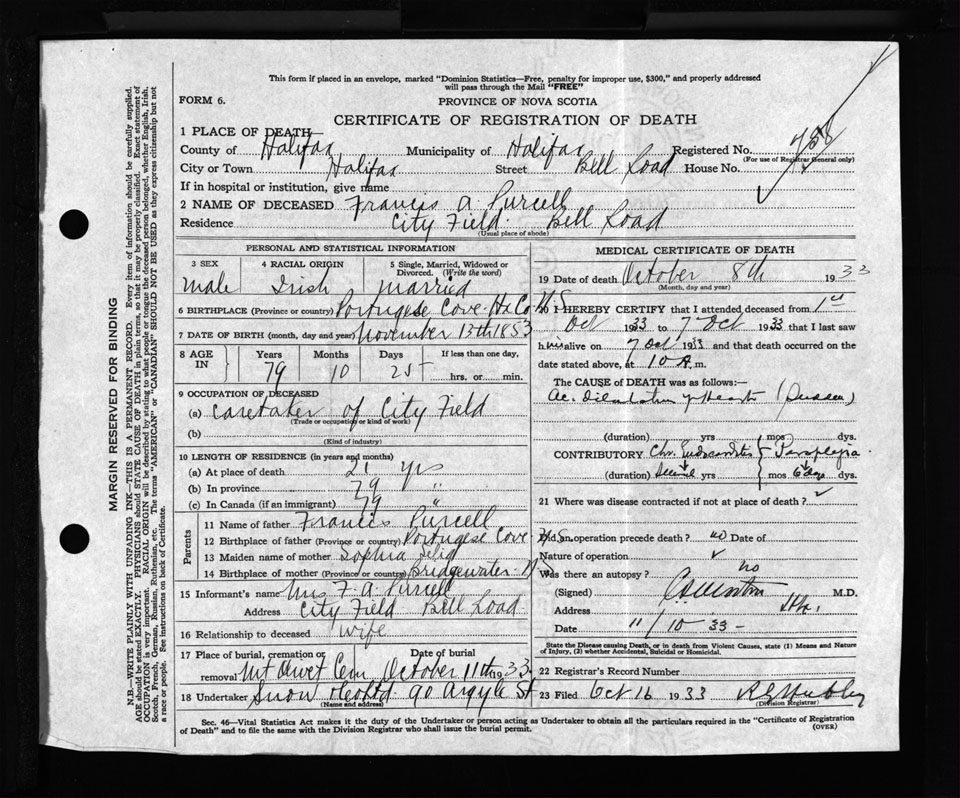 This form if placed in an envelope, marked "Dominion Statistics—Free, penalty for improper use, $300," and properly addressed
will pass through the Mail "FREE"
FORM 6.
PROVINCE OF NOVA SCOTIA
CERTIFICATE OF REGISTRATION OF DEATH
1 PLACE OF DEATH—
County of Halifax Municipality of Halifax Registered No. 788
(For use of Registrar General only)
City or Town Halifax Street Bell Road House No.
If in hospital or institution, give name
2 NAME OF DECEASED Francis A. Purcell
Residence City Field. Bell Road
(Usual place of abode)
PERSONAL AND STATISTICAL INFORMATION
3 SEX 4 RACIAL ORIGIN 5 Single, Married, Widowed or
Divorced. (Write the word)
Male Irish Married
6 BIRTHPLACE (Province or country) Portugese Cove. Hx Co N.S
7 DATE OF BIRTH (month, day and year) November 13th 1853
8 AGE IN Years Months Days If less than one day,
79 10 25 hrs. or min.
9 OCCUPATION OF DECEASED
(a) Caretaker of City Field
(Trade or occupation or kind of work)
(b)
(Kind of industry)
10 LENGTH OF RESIDENCE (in years and months)
(a) At place of death 21 yrs
(b) In province 79 "
(c) In Canada (if an immigrant) 79 "
Parents
11 Name of father Francis Purcell
12 Birthplace of father (Province or country) Portugese Cove N.S.
13 Maiden name of mother Sophia Selig
14 Birthplace of mother (Province or country) Bridgewater N S
15 Informant's name Mrs F. A. Purcell
Address City Field Bell Road
16 Relationship to deceased Wife
17 Place of burial, cremation or Date of burial
removal Mt Olivet Cem October 11th 1933
18 Undertaker Snow & Co Ltd 90 Argyle St
(Name and address)
MEDICAL CERTIFICATE OF DEATH
19 Date of death October 8th 1933
(Month, day and year)
20 I HEREBY CERTIFY that I attended deceased from 1st
Oct 1933 to 7 Oct 1933 that I last saw
him alive on 7 Oct 1933 and that death occurred on the
date stated above, at 10 A. m.
The CAUSE OF DEATH was as follows:—
Ac. dilatation of heart (Sudden)
(duration) yrs mos dys.
CONTRIBUTORY Chr. Endocarditis Paraplegia
(duration) Several yrs mos 6 days dys.
21 Where was disease contracted if not at place of death?
Did an operation precede death? no Date of
Nature of operation
Was there an autopsy? no
(Signed) M.D.
Address Hfx.
Date 11/10 33-
State the Disease causing Death, or in death from Violent Causes, state (1) Means and Nature
of Injury, (2) whether Accidental, Suicidal or Homicidal.
22 Registrar's Record Number
23 Filed Oct 16 1933
(Division Registrar)
Sec. 46—Vital Statistics Act makes it the duty of the Undertaker or person acting as Undertaker to obtain all the particulars required in the "Certificate of Registration
of Death" and to file the same with the Division Registrar who shall issue the burial permit.
(OVER)
MARGIN RESERVED FOR BINDING
N.B.—WRITE PLAINLY WITH UNFADING INK—THIS IS A PERMANENT RECORD. Every item of information should be carefully supplied.
AGE should be stated EXACTLY. PHYSICIANS should STATE CAUSE OF DEATH in plain terms, so that it may be properly classified. Exact statement of
OCCUPATION is very important. RACIAL ORIGIN will be described by stating to what people or tongue the deceased person belonged, whether English, Irish,
Scotch, French, German, Russian, Ruthenian, etc. The terms "AMERICAN" or "CANADIAN" SHOULD NOT BE USED as they express citizenship but not
a race or people. See instructions on back of Certificate.